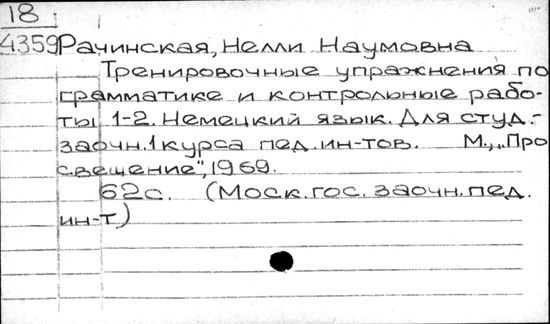 18
4359 Рачинская, Нелли Наумовна
Тренировочные упражнения по
грамматике и контрольные рабо-
ты 1-2. Немецкий язык. Для студ.-
заочн. 1 курса пед. ин-тов. М., „Про
свещение", 1969.
62с. (Моск. гос. заочн. пед.
ин-т)